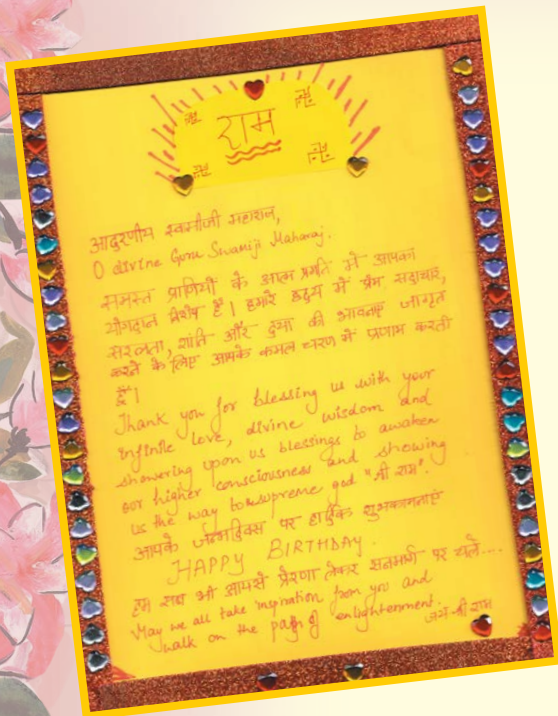 राम
आदरणीय स्वामीजी महाराज,
O divine Guru Swamiji Maharaj.
समस्त प्राणियों के आत्म प्रगति में आपका
योगदान विशेष है। हमारे हृदय में प्रेम सदाचार,
सरलता, शांति और दया की भावनाए जागृत
करने के लिए आपके कमल चरण में प्रणाम करती
हूँ।
Thank you for blessing us with your
infinite love, divine wisdom and
showering upon us blessings to awaken
our higher consciousness and showing
us the way to supreme god "श्री राम".
आपके जन्मदिवस पर हार्दिक शुभकामनाएं
HAPPY BIRTHDAY.
हम सब भी आपसे प्रेरणा लेकर सतमार्ग पर चलें....
May we all take inspiration from you and
walk on the path of enlightenment.
जय श्री राम